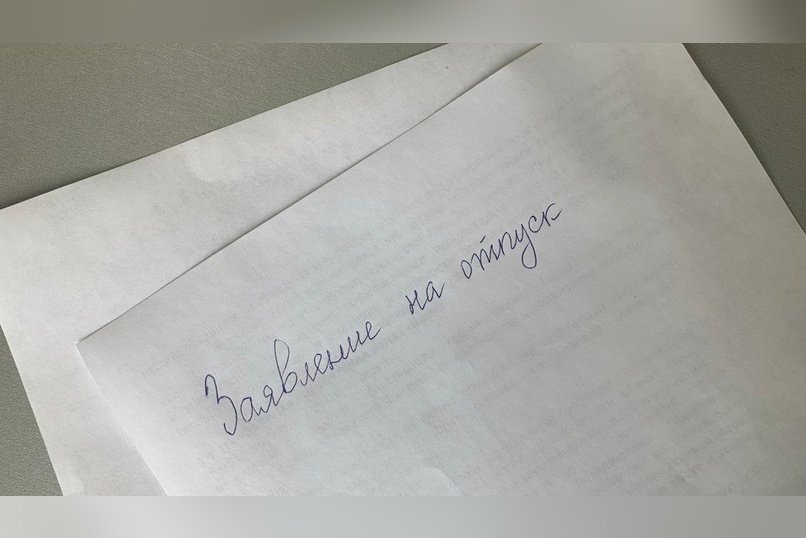 Заявление на отпуск